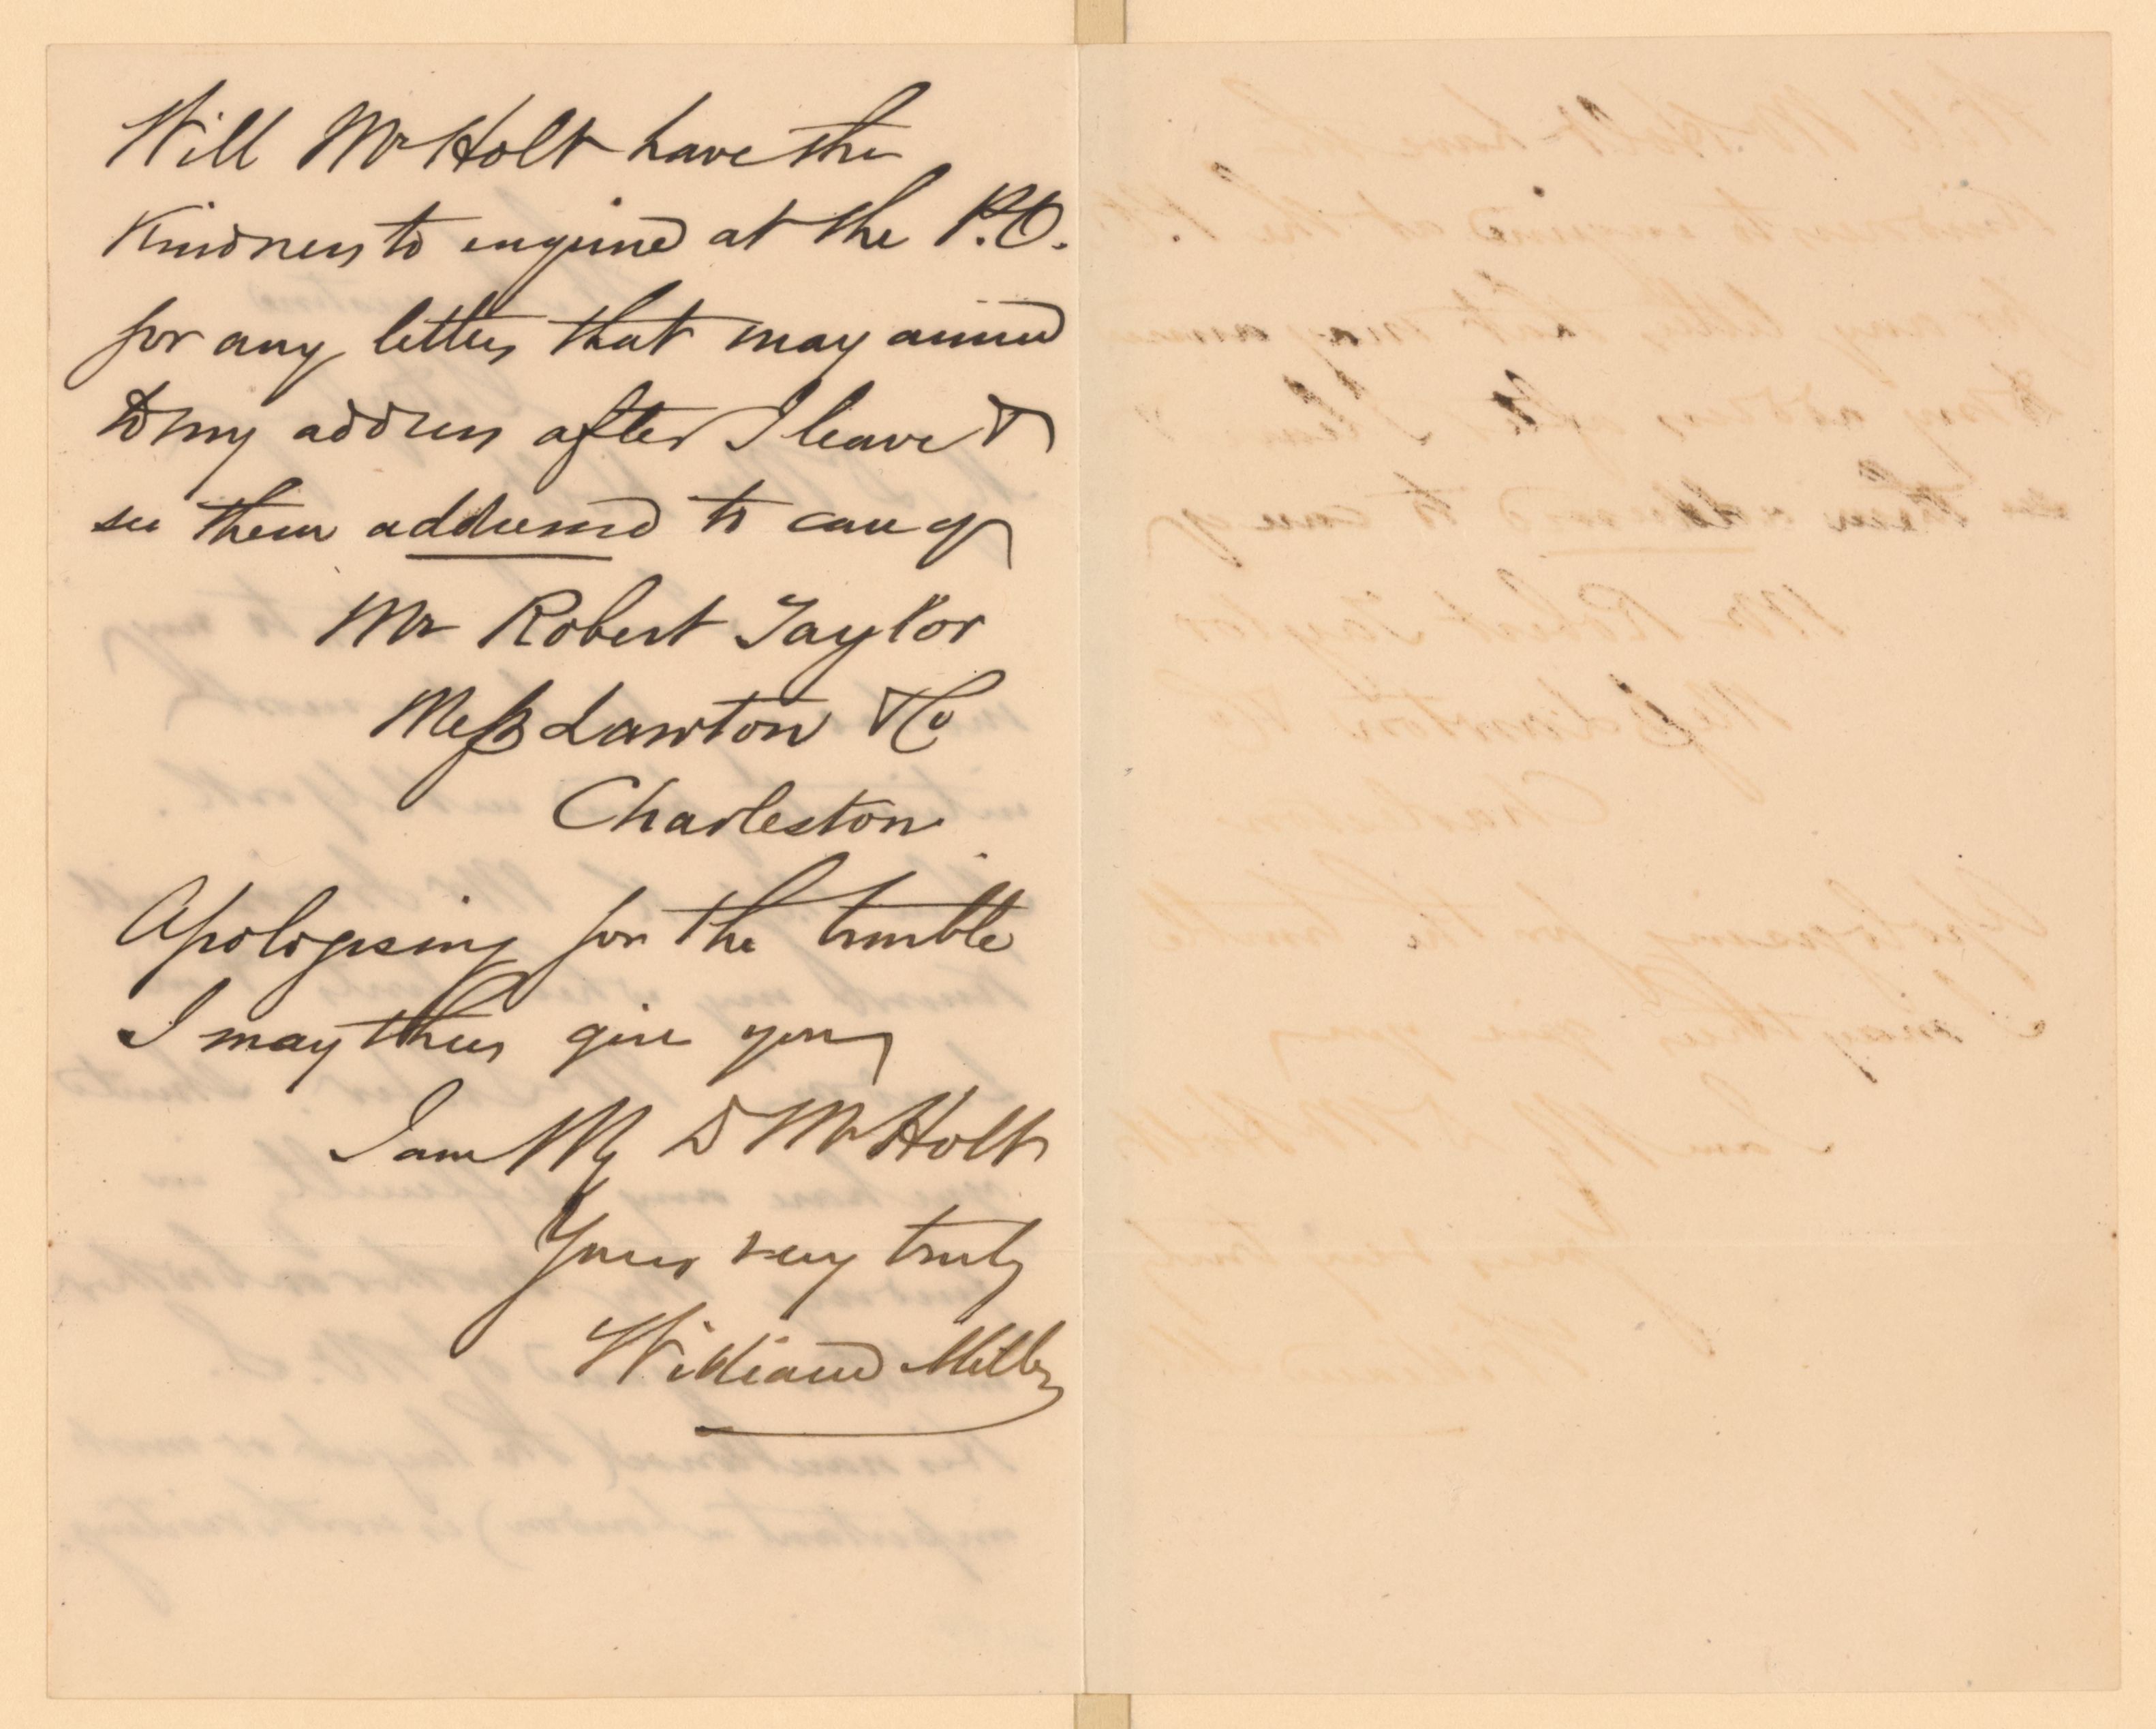 Will Mr Holt have the
Kindness to enquire at the P.O.
for any letters that may arrive
to my address after I leave &
see them addressed to care of
Mr Robert Taylor
Messrs Lawton & Co
Charleston
Apologising for the trouble
I may thus give you
I am My D Mr Holt
Yours very truly
William Miller